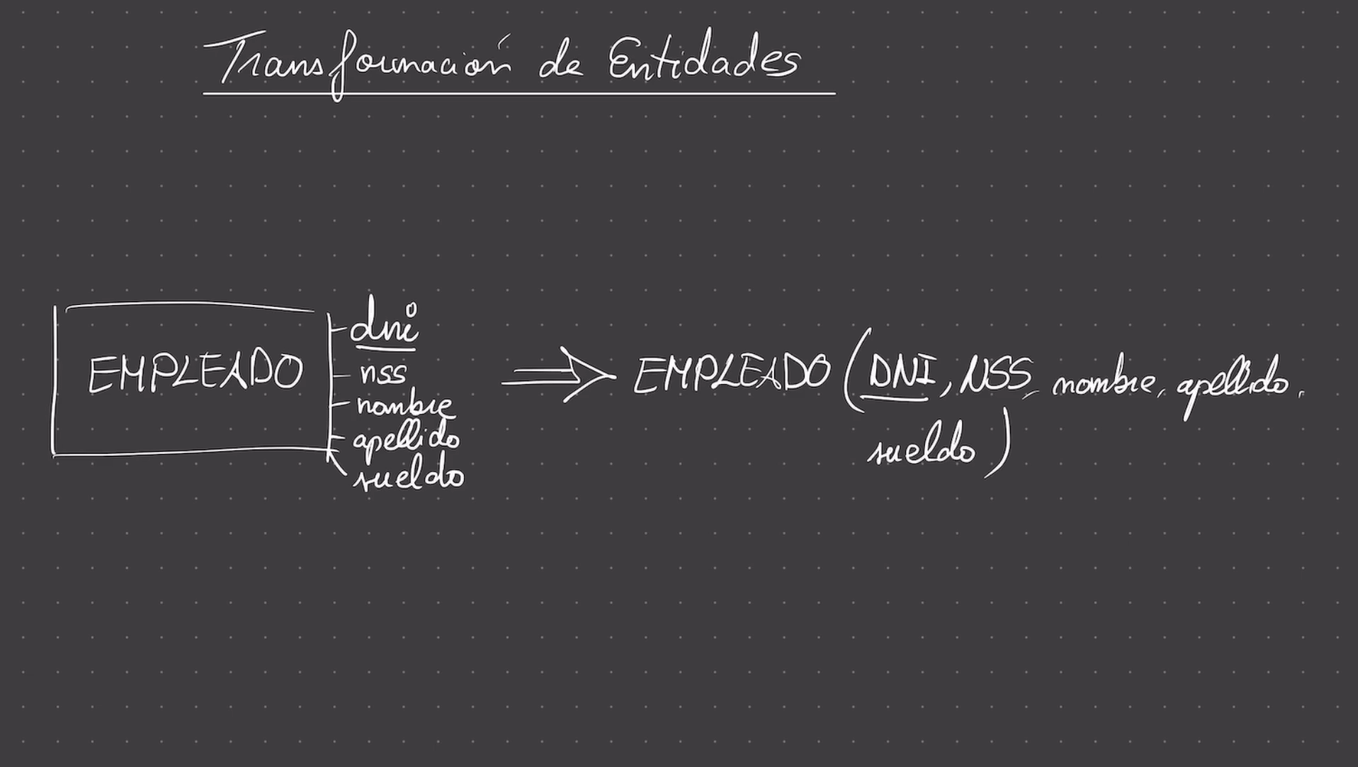 Transformación de Entidades
EMPLEADO
dni
nss
nombre
apellido
sueldo
EMPLEADO (DNI, NSS, nombre, apellido,
sueldo)